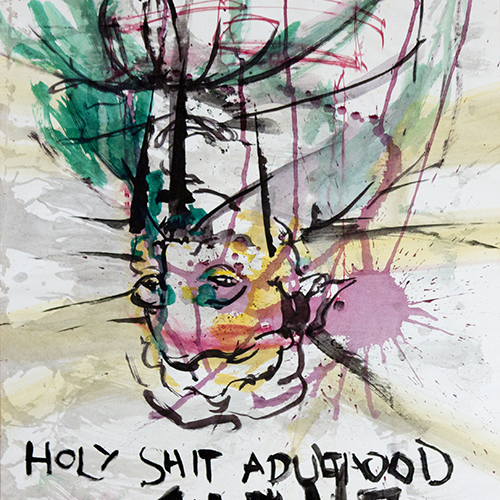 HOLY SHIT ADULTHOOD